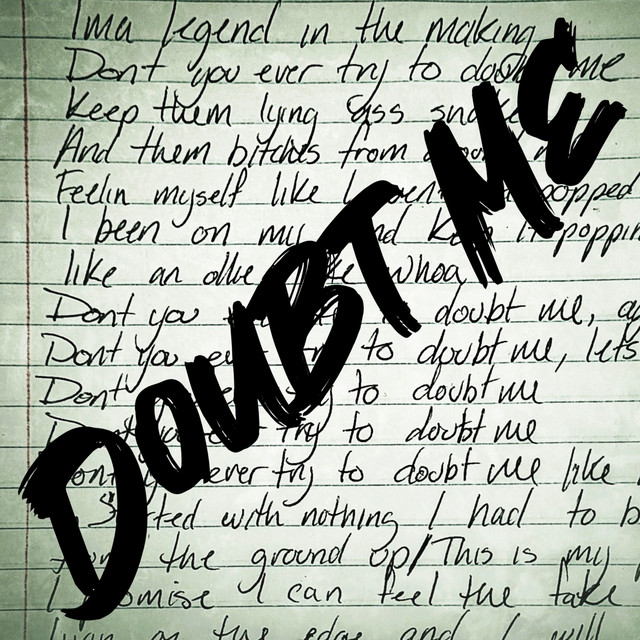 Ima legend in the making
Don't you ever try to doubt me
Keep them lying ass snakes
And them bitches from around me
Feelin myself like I popped
I been on my and keep it poppin
like an ollie like whoa
Dont you doubt me,
Dont you ever try to doubt me, lets
Dont to doubt me
try to doubt me
Dont ever try to doubt me like
Started with nothing I had to
from the ground up/This is my
I promise I can feel the fake
the edge and I will
DOUBT ME